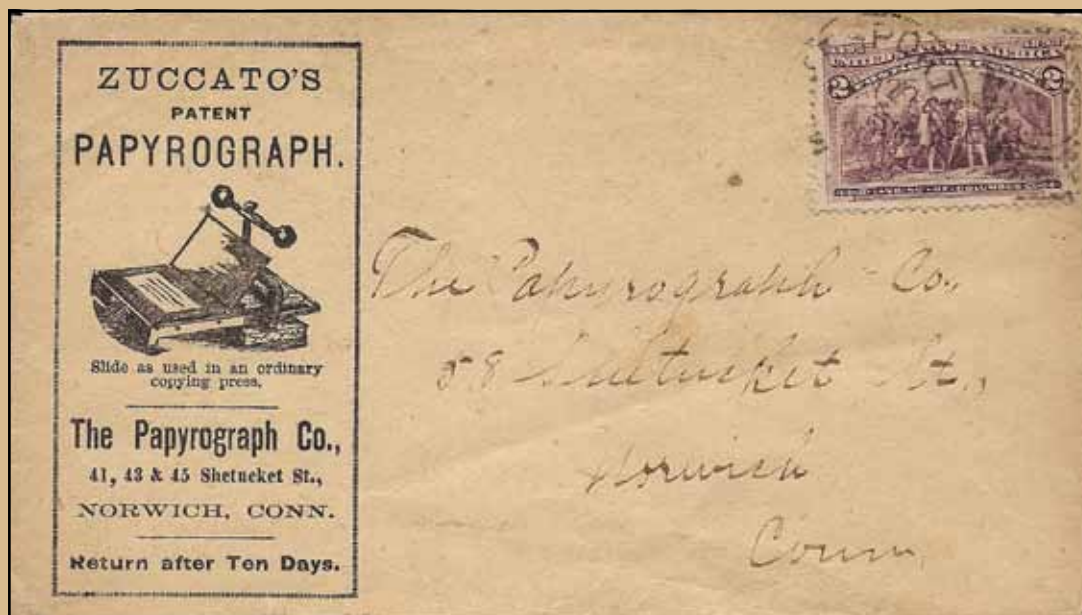 ZUCCATO'S
PATENT
PAPYROGRAPH.
Slide as used in an ordinary
copying press.
The Papyrograph Co.,
41, 43 & 45 Shetucket St.,
NORWICH, CONN.
Return after Ten Days.
UNITED STATES OF AMERICA
2 2
LANDING OF COLUMBUS
The Papyrograph Co.,
58 Shetucket St.,
Norwich
Conn